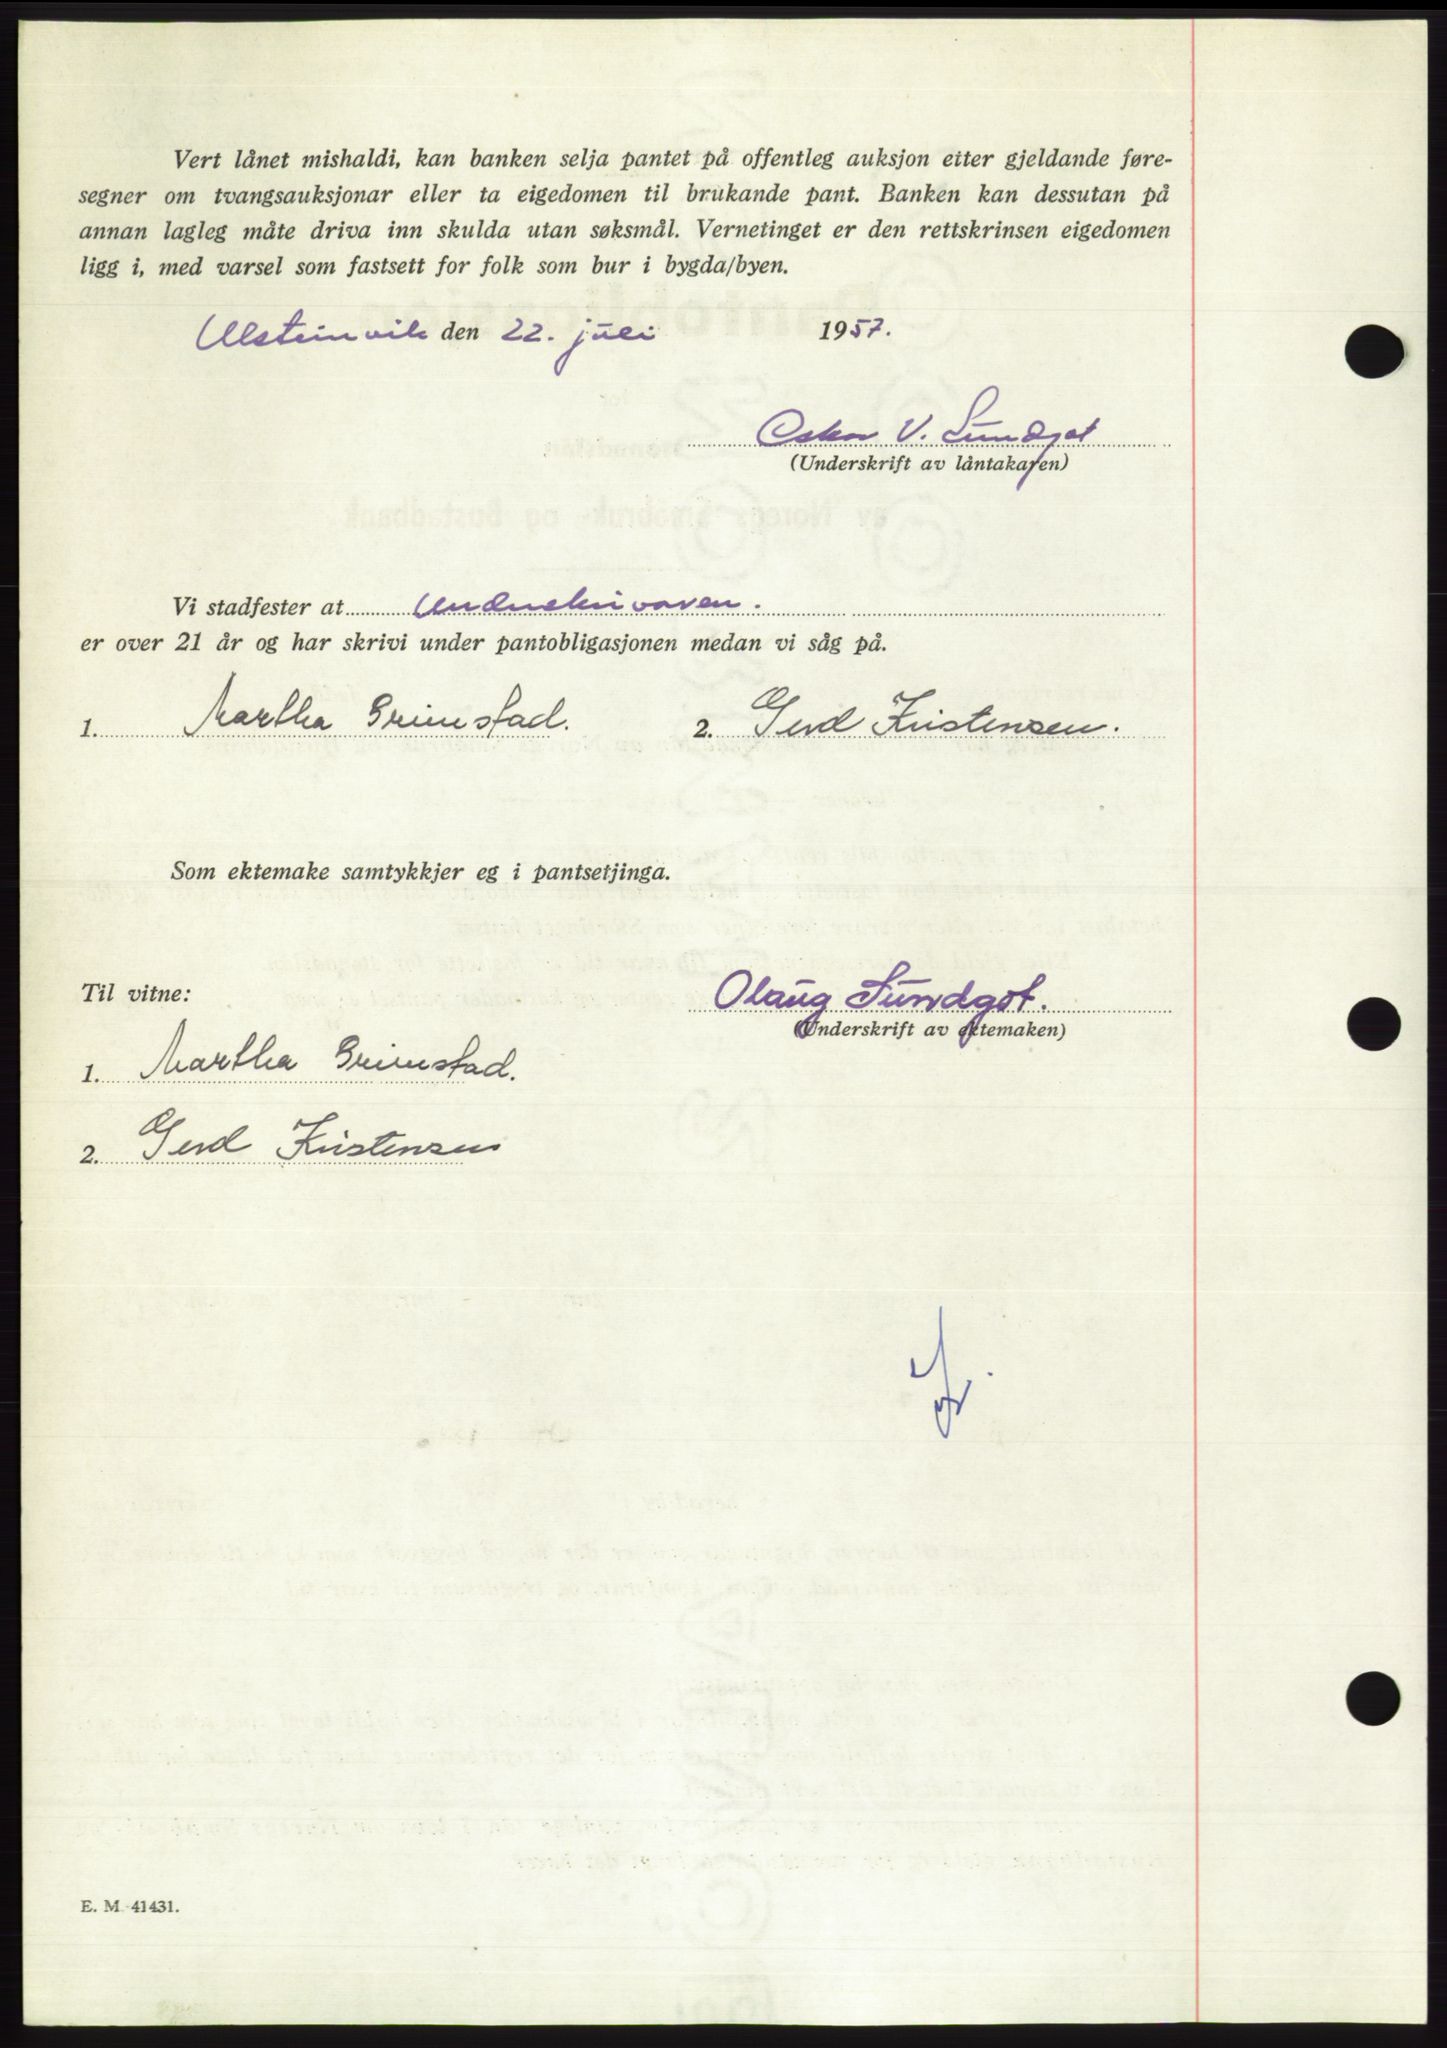 Vert lånet mishaldi, kan banken selja pantet på offentleg auksjon etter gjeldande føre-
segner om tvangsauksjonar eller ta eigedomen til brukande pant. Banken kan dessutan på
annan lagleg måte driva inn skulda utan søksmål. Vernetinget er den rettskrinsen eigedomen
ligg i, med varsel som fastsett for folk som bur i bygda/byen.
Ulsteinvik den 22. juli 1957.
Oskar V. Sundgot
(Underskrift av låntakaren)
Vi stadfester at Underskrivaren.
er over 21 år og har skrivi under pantobligasjonen medan vi såg på.
1. Martha Grimstad. 2. Gerd Kristensen.
Som ektemake samtykkjer eg i pantsetjinga.
Til vitne:
Olaug Sundgot.
(Underskrift av ektemaken)
1. Martha Grimstad.
2. Gerd Kristensen
E. M. 41431.